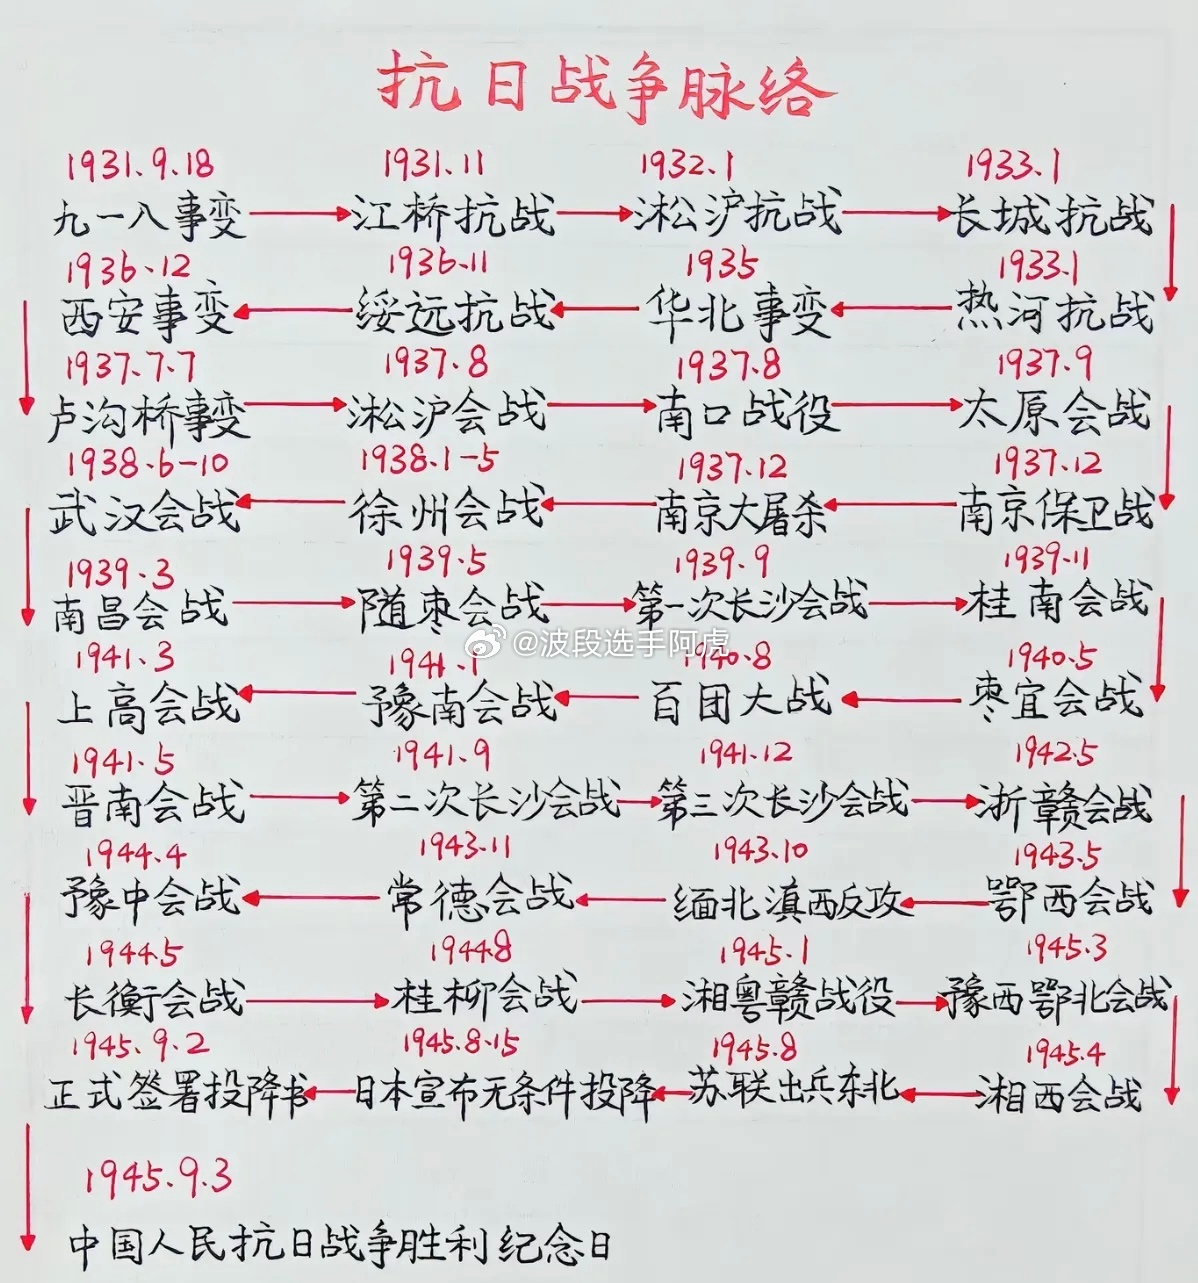 抗日战争脉络
1931.9.18 1931.11 1932.1 1933.1
九一八事变 江桥抗战 淞沪抗战 长城抗战
1936.12 1936.11 1935 1933.1
西安事变 绥远抗战 华北事变 热河抗战
1937.7.7 1937.8 1937.8 1937.9
卢沟桥事变 淞沪会战 南口战役 太原会战
1938.6-10 1938.1-5 1937.12 1937.12
武汉会战 徐州会战 南京大屠杀 南京保卫战
1939.3 1939.5 1939.9 1939.11
南昌会战 随枣会战 第一次长沙会战 桂南会战
@波段选手阿虎
1941.3 1941.1 1940.8 1940.5
上高会战 豫南会战 百团大战 枣宜会战
1941.5 1941.9 1941.12 1942.5
晋南会战 第二次长沙会战 第三次长沙会战 浙赣会战
1944.4 1943.11 1943.10 1943.5
豫中会战 常德会战 缅北滇西反攻 鄂西会战
1944.5 1944.8 1945.1 1945.3
长衡会战 桂柳会战 湘粤赣战役 豫西鄂北会战
1945.9.2 1945.8.15 1945.8 1945.4
正式签署投降书 日本宣布无条件投降 苏联出兵东北 湘西会战
1945.9.3
中国人民抗日战争胜利纪念日